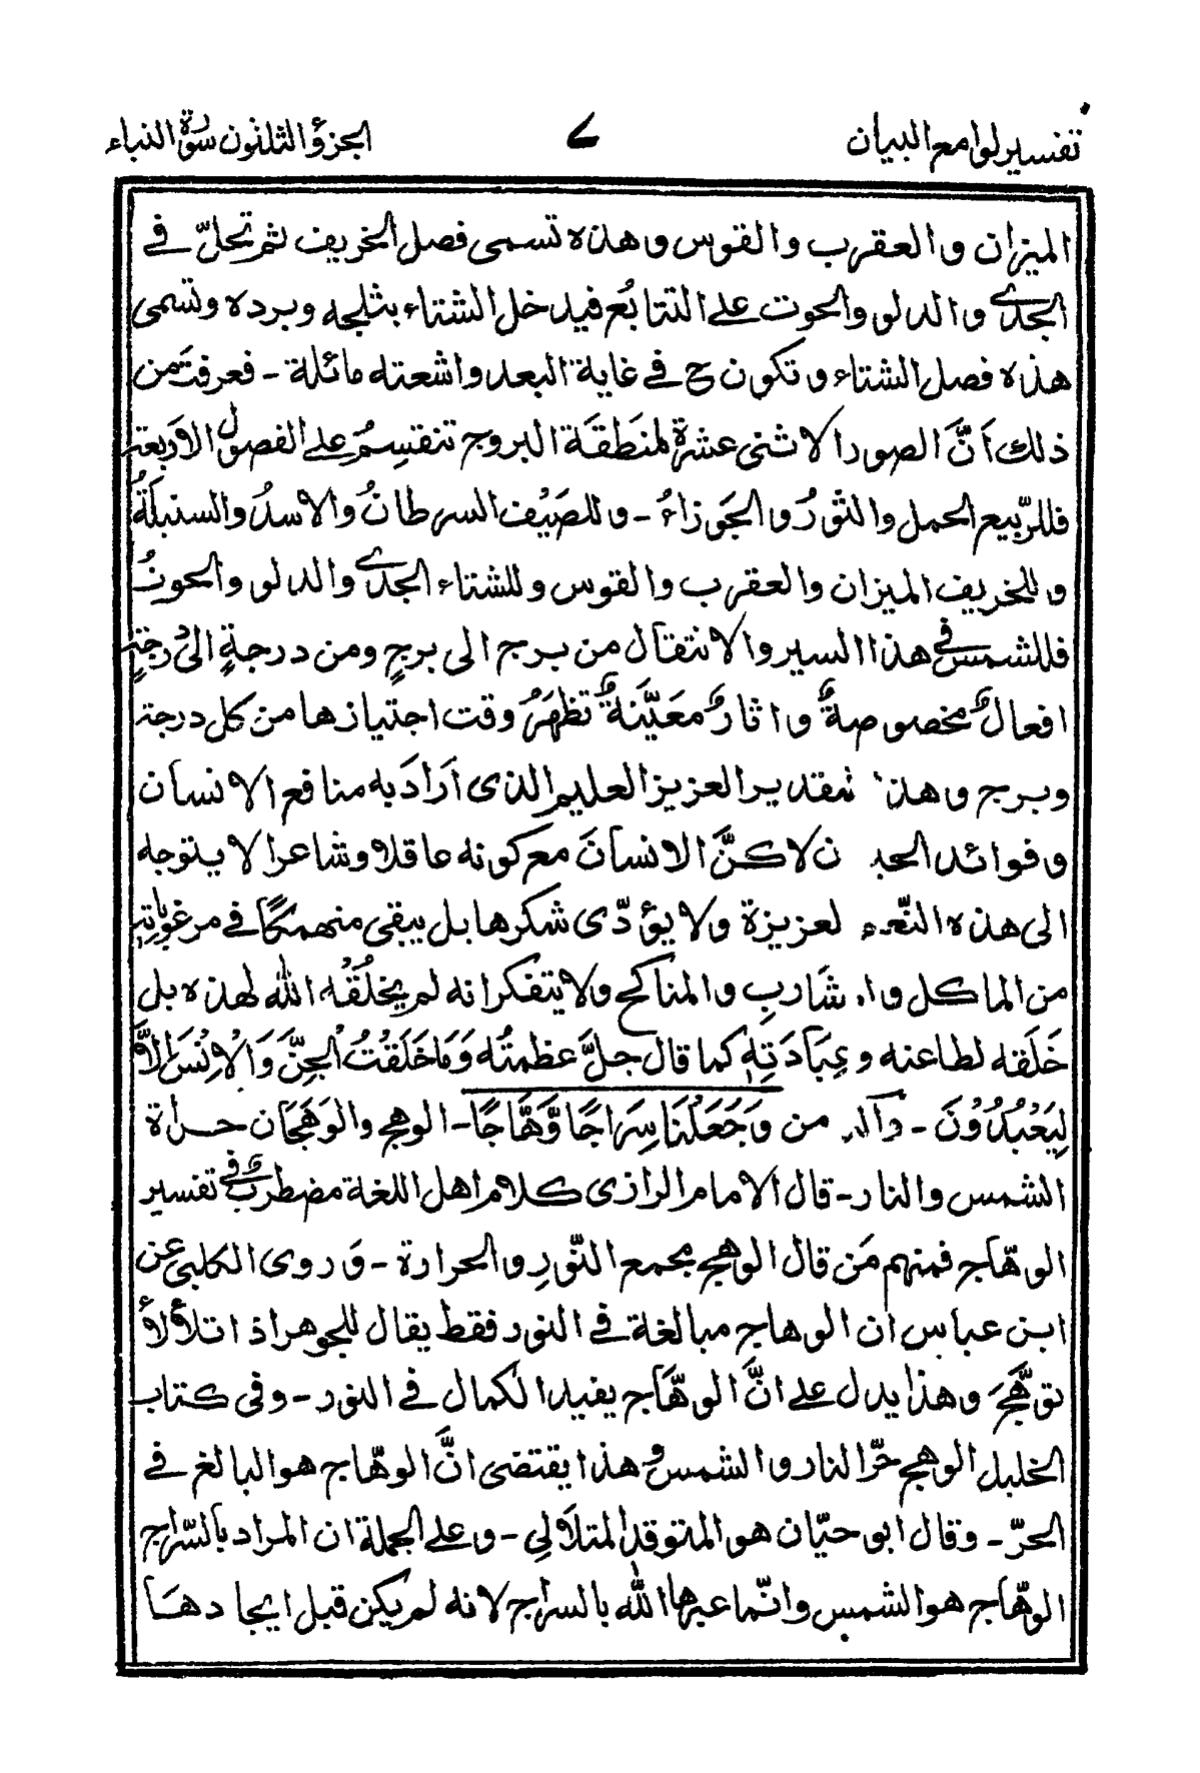 تفسير لوامع البيان
٧
الجزؤ الثلثون سورة النباء
الميزان والعقرب والقوس وهذه تسمى فصل الخريف ثم تحلّ في
الجدي والدلو والحوت على التتابُع فيدخل الشتاء بثلجه وبرده وتسمى
هذه فصل الشتاء وتكون ح في غاية البعد واشعته مائلة - فعرفت من
ذلك اَنَّ الصور الاثنى عشرة لمنَطقَة البروج تنقسِمُ على الفصول الاربعة
فللرّبيع الحمل والثورُ والجَوزاءُ - وللصَيْف السرطانُ والاسدُ والسنبلَةُ
وللخريف الميزان والعقرب والقوس وللشتاء الجدي والدلو والحوتُ
فللشمس في هذا السير والانتقال من برج الى برجٍ ومن درجةٍ الى درجةٍ
افعالٌ مخصوصةٌ واثارٌ معَيَّنةٌ تظهَرُ وقت اجتيازها من كل درجة
وبرج وهذا تقدير العزيز العليم الذى اَرادَ به منافع الانسان
وفوائد الحيـ ن لاكنَّ الانسانَ مع كونه عاقلا وشاعرا لا يتوجه
الى هذه النّعم لعزيزة ولا يؤدّى شكرها بل يبقى منهمكًا في مرغوباته
من الماكل والمشَارب والمناكح ولا يتفكر انه لم يخلُقْه الله لهذه بل
خَلَقه لطاعته وعِبَادَتِهٖ كما قال جلَّ عظمتُه وَمَا خَلَقْتُ الْجِنَّ وَالْاِنْسَ اِلَّا
لِيَعْبُدُوْنَ - من وَجَعَلْنَا سِرَاجًا وَّهَّاجًا - الوهج والوَهَجَان حرارة
الشمس والنار - قال الامام الرازى كلام اهل اللغة مضطربٌ في تفسير
الوهّاج فمنهم مَن قال الوهج مجمع النّورِ والحرارة - وَروى الكلبي عن
ابن عباس ان الوهاج مبالغة في النور فقط يقال للجوهر اذا تلألأ
توهَّجَ وهذا يدل على انَّ الوهَّاج يفيد الكمال في النور - وفى كتاب
الخليل الوهج حرّ النار والشمس وهذا يقتضى انَّ الوهّاج هو البالغ في
الحرّ - وقال ابو حيّان هو المتوقد المتلالي - وعلى الجملة ان المراد بالسّراج
الوهّاج هو الشمس وانّما عبرها الله بالسراج لانه لم يكن قبل ايجادهَا